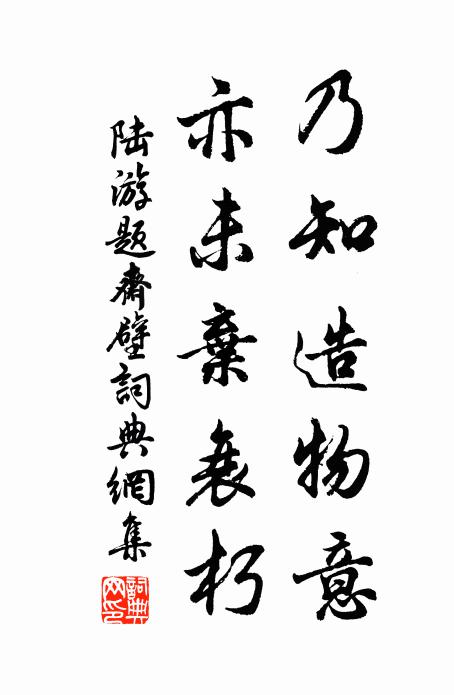 乃知造物意
亦未棄衰朽
陸游題齋壁詞典網集
詞典網印